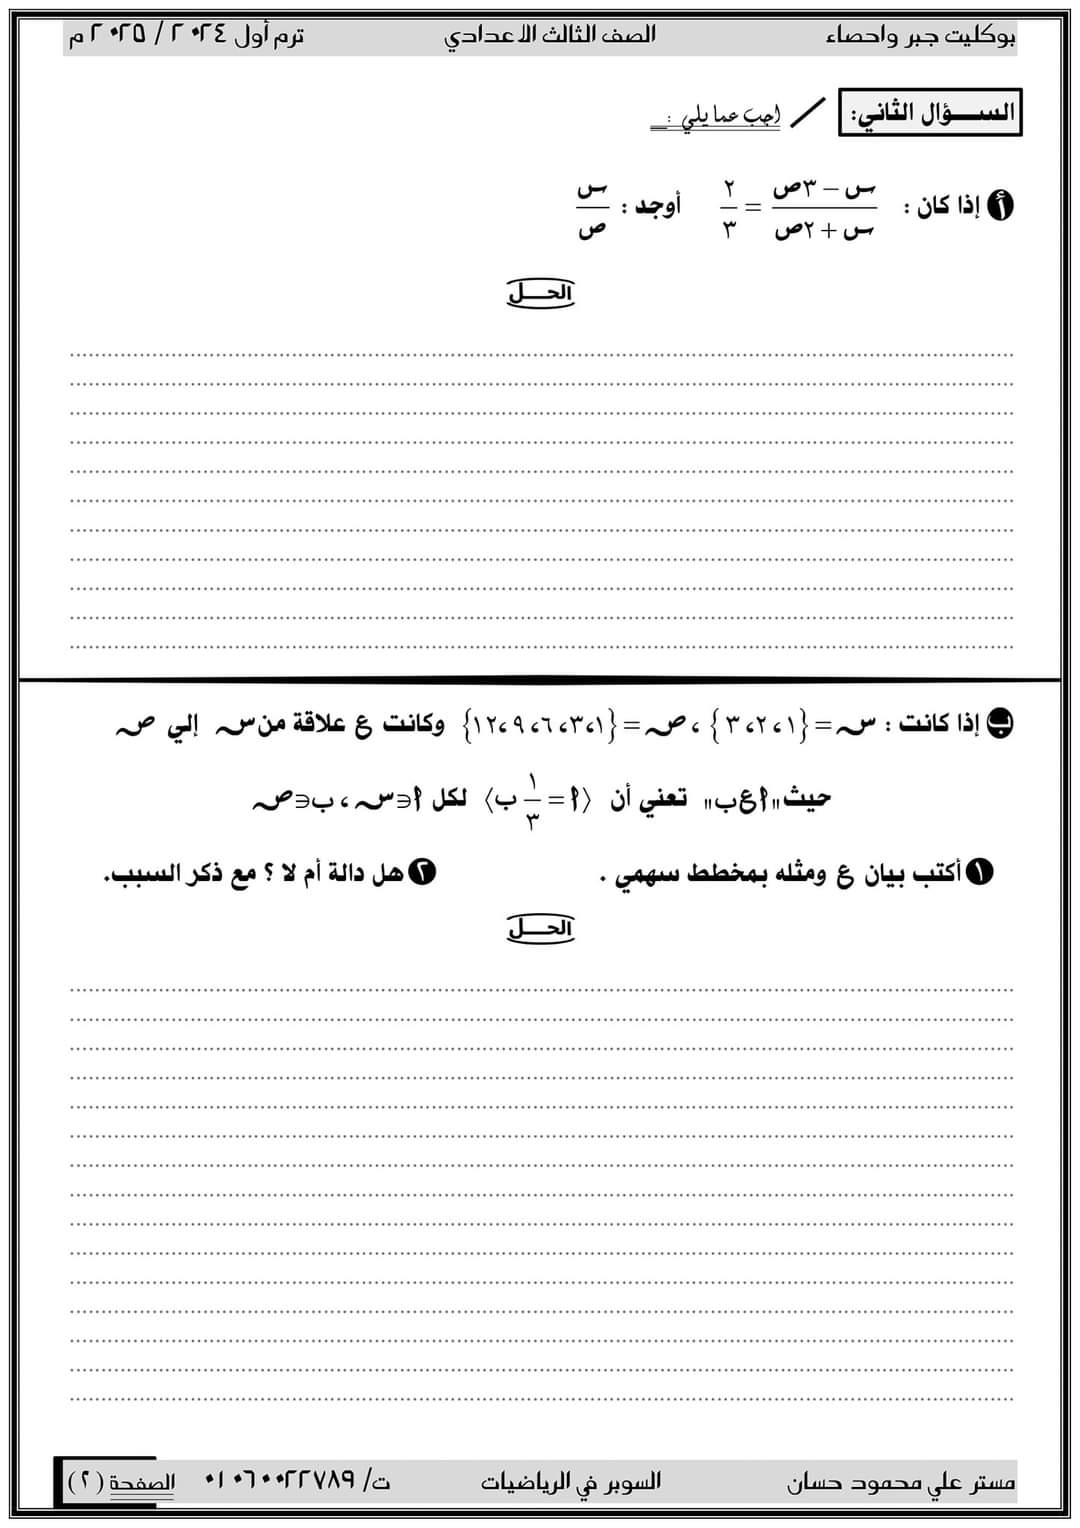 بوكليت جبر واحصاء الصف الثالث الاعدادي ترم أول ٢٠٢٤ / ٢٠٢٥ م
الســـؤال الثاني: / اجب عما يلي :ـ
أ إذا كان : (س − ٣ص)/(س + ٢ص) = ٢/٣ أوجد : س/ص
الحـــل
ب إذا كانت : س = {١، ٢، ٣} ، ص = {١، ٣، ٦، ٩، ١٢} وكانت ع علاقة من س إلي ص
حيث "أ ع ب" تعني أن ⟨أ = ١/٣ ب⟩ لكل أ∈س ، ب∈ص
١ أكتب بيان ع ومثله بمخطط سهمي . ٢ هل دالة أم لا ؟ مع ذكر السبب.
الحـــل
مستر علي محمود حسان السوبر في الرياضيات ت/ ٠١٠٦٠٠٢٢٧٨٩ الصفحة (٢)